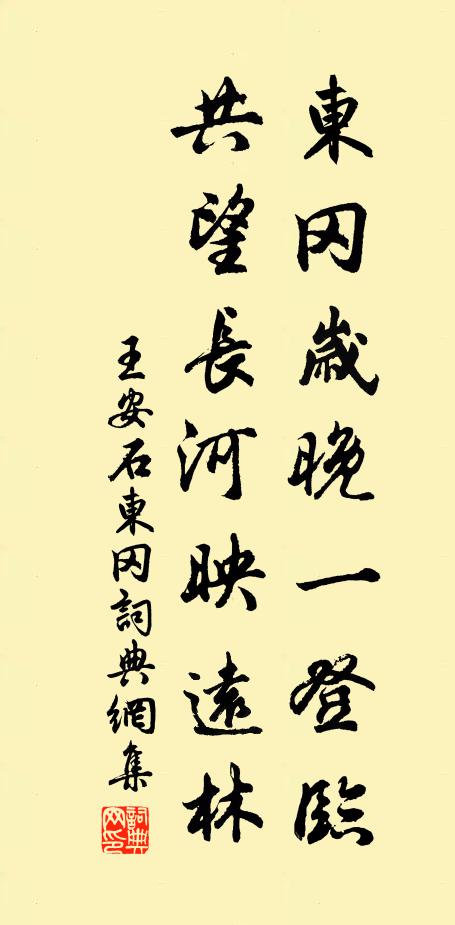 東冈歲晚一登臨
共望長河映遠林
王安石東冈詞典網集
詞典网印